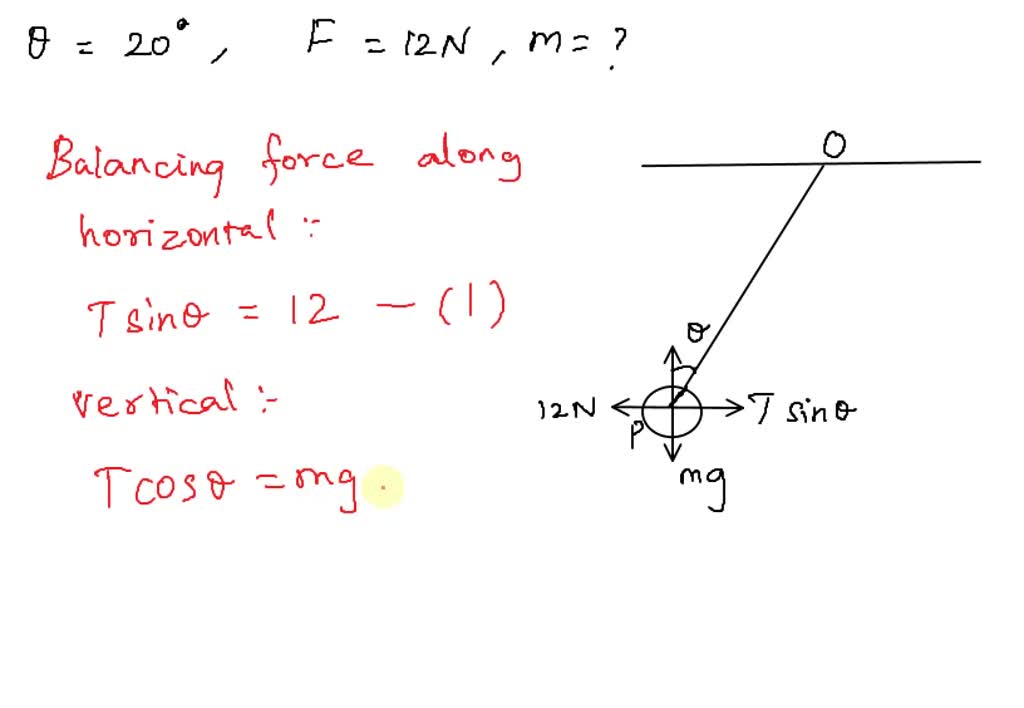 θ = 20°, F = 12N, m = ?
Balancing force along
horizontal :-
T sinθ = 12 — (1)
vertical :-
T cosθ = mg
O
θ
12N
T sinθ
P
mg